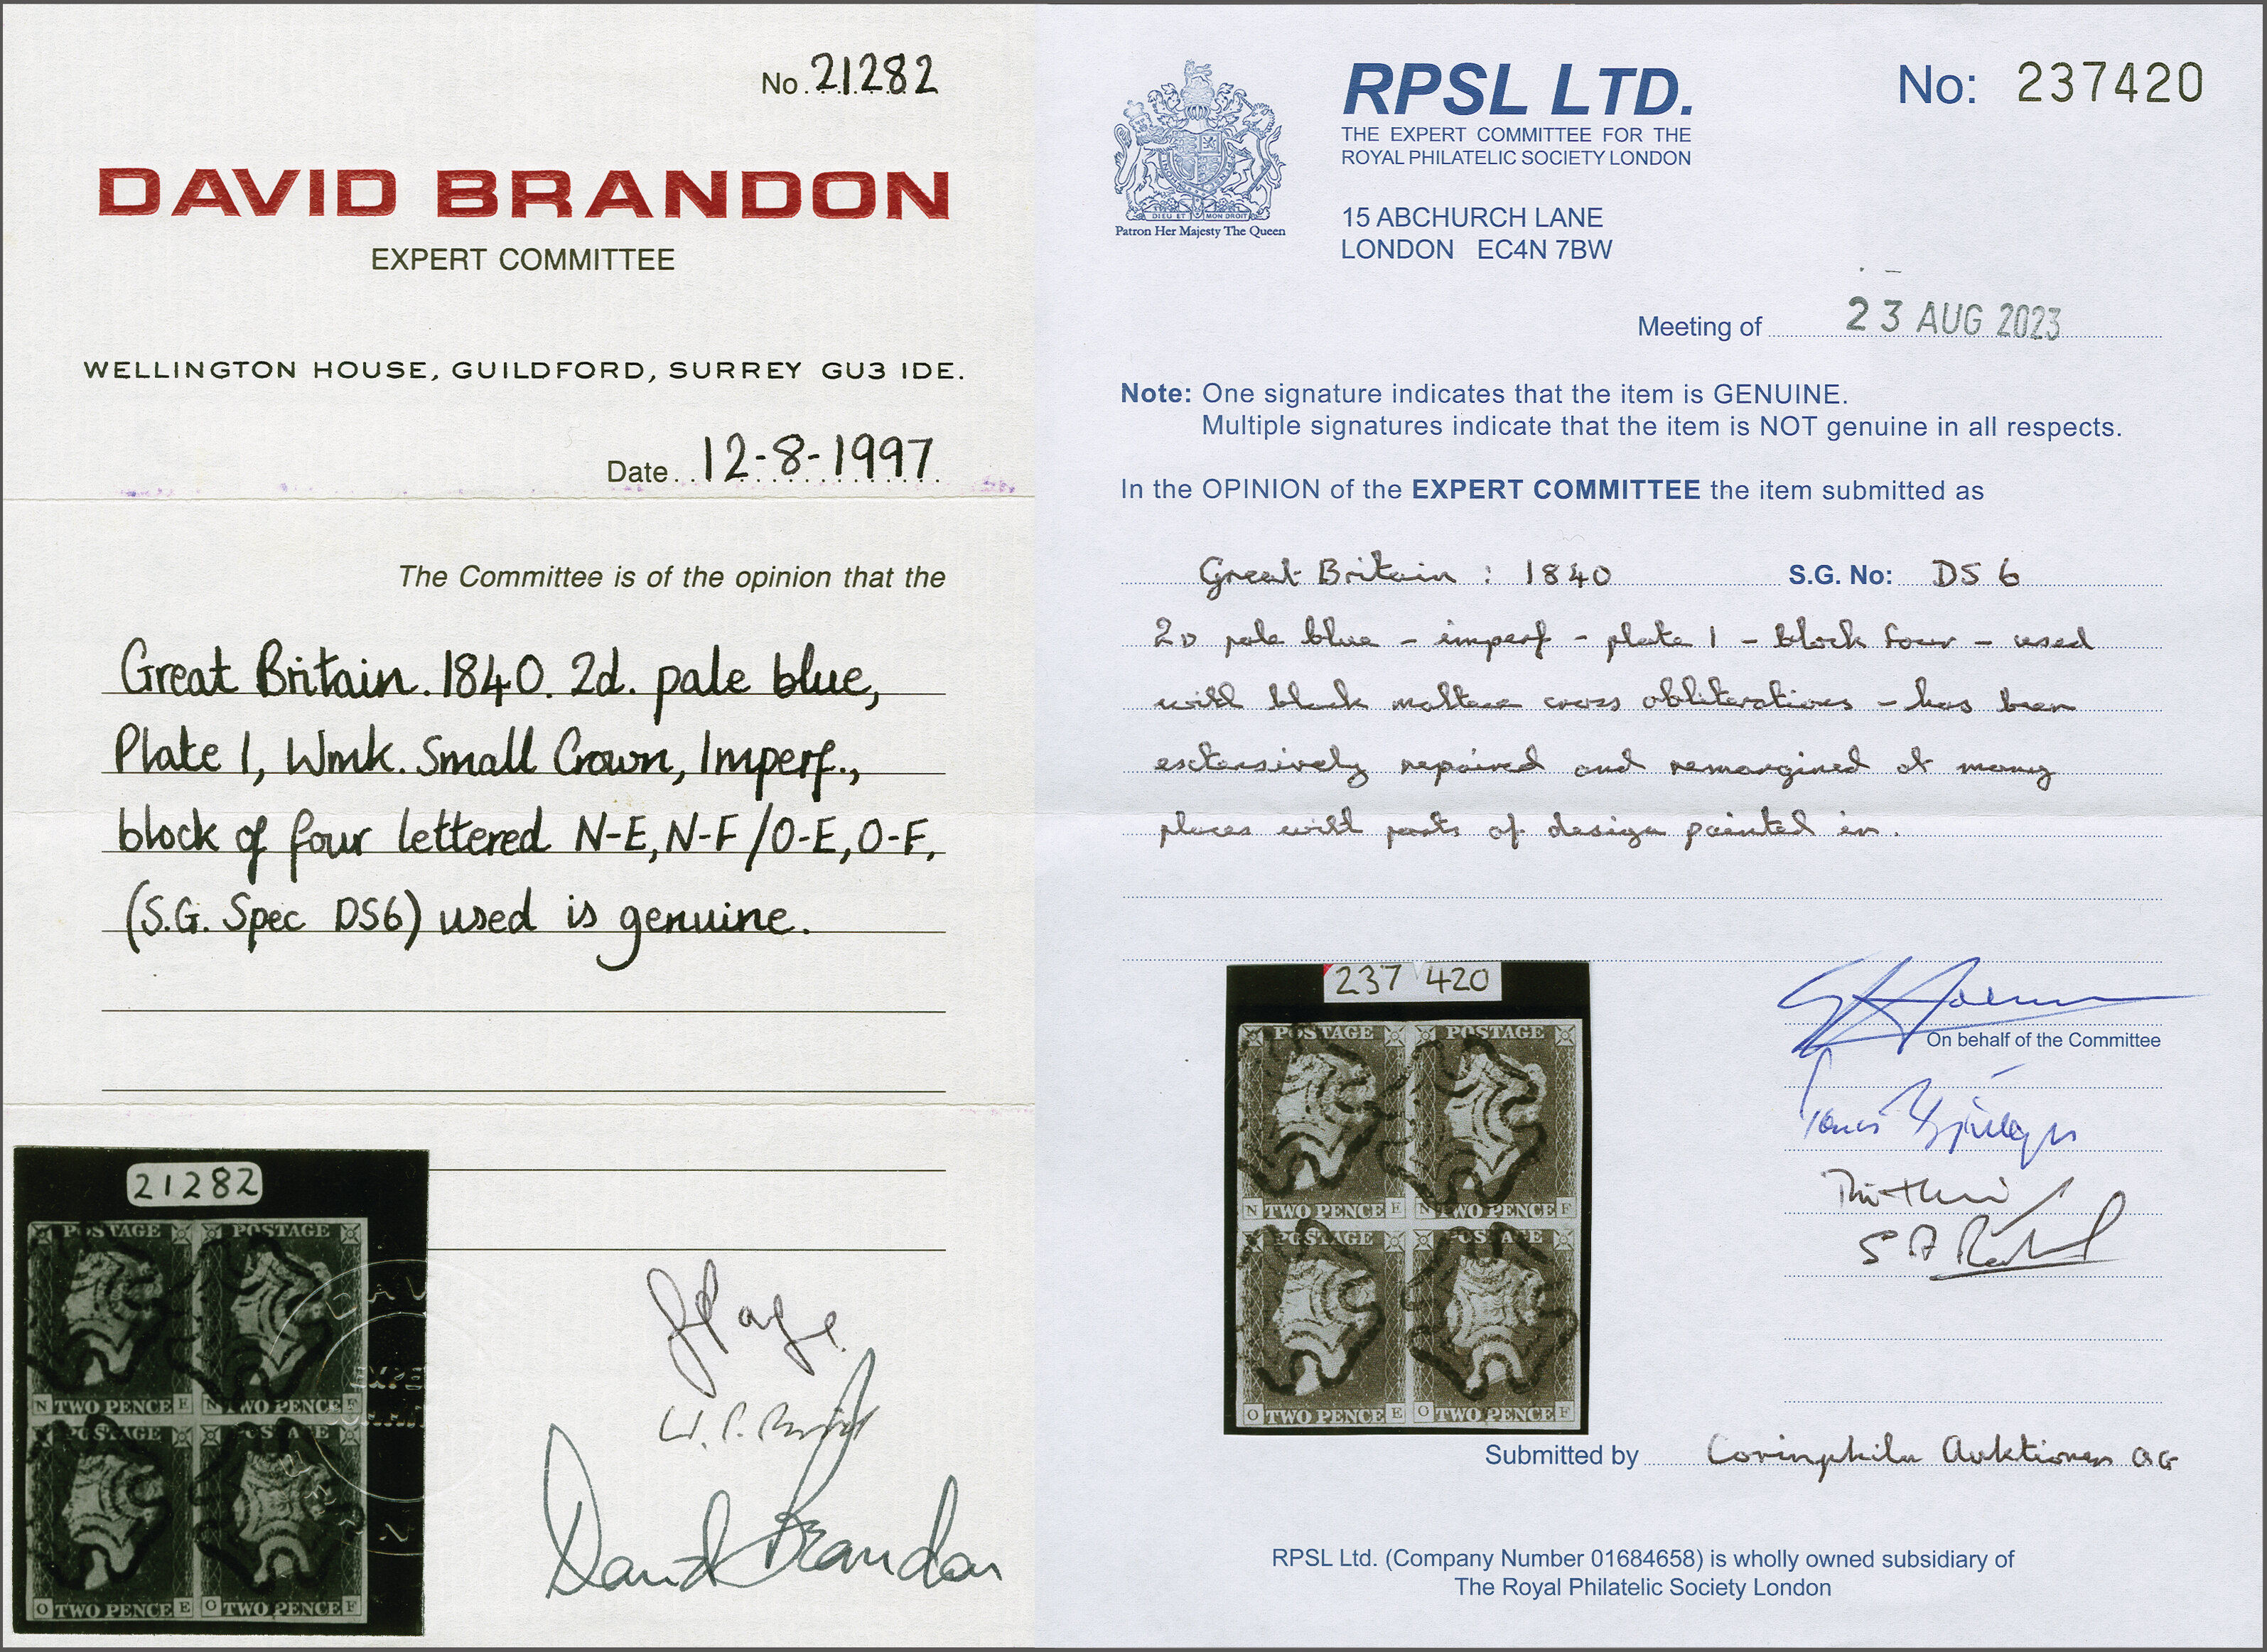 No. 21282
DAVID BRANDON
EXPERT COMMITTEE
WELLINGTON HOUSE, GUILDFORD, SURREY GU3 IDE.
Date 12-8-1997
The Committee is of the opinion that the
Great Britain. 1840. 2d. pale blue,
Plate 1, Wmk. Small Crown, Imperf.,
block of four lettered N-E, N-F/O-E, O-F,
(S.G. Spec DS6) used is genuine.
21282
POSTAGE POSTAGE
N TWO PENCE E N TWO PENCE F
POSTAGE POSTAGE
O TWO PENCE E O TWO PENCE F
David Brandon
RPSL LTD.
THE EXPERT COMMITTEE FOR THE
ROYAL PHILATELIC SOCIETY LONDON
DIEU ET MON DROIT
Patron Her Majesty The Queen
15 ABCHURCH LANE
LONDON EC4N 7BW
No: 237420
Meeting of 23 AUG 2023
Note: One signature indicates that the item is GENUINE.
Multiple signatures indicate that the item is NOT genuine in all respects.
In the OPINION of the EXPERT COMMITTEE the item submitted as
Great Britain : 1840 S.G. No: DS 6
2D pale blue - imperf - plate 1 - block four - used
with black maltese cross obliterations - has been
extensively repaired and remargined at many
places with parts of design painted in.
237 420
POSTAGE POSTAGE
N TWO PENCE E N TWO PENCE F
POSTAGE POSTAGE
O TWO PENCE E O TWO PENCE F
On behalf of the Committee
Submitted by Corinphila Auktionen AG
RPSL Ltd. (Company Number 01684658) is wholly owned subsidiary of
The Royal Philatelic Society London